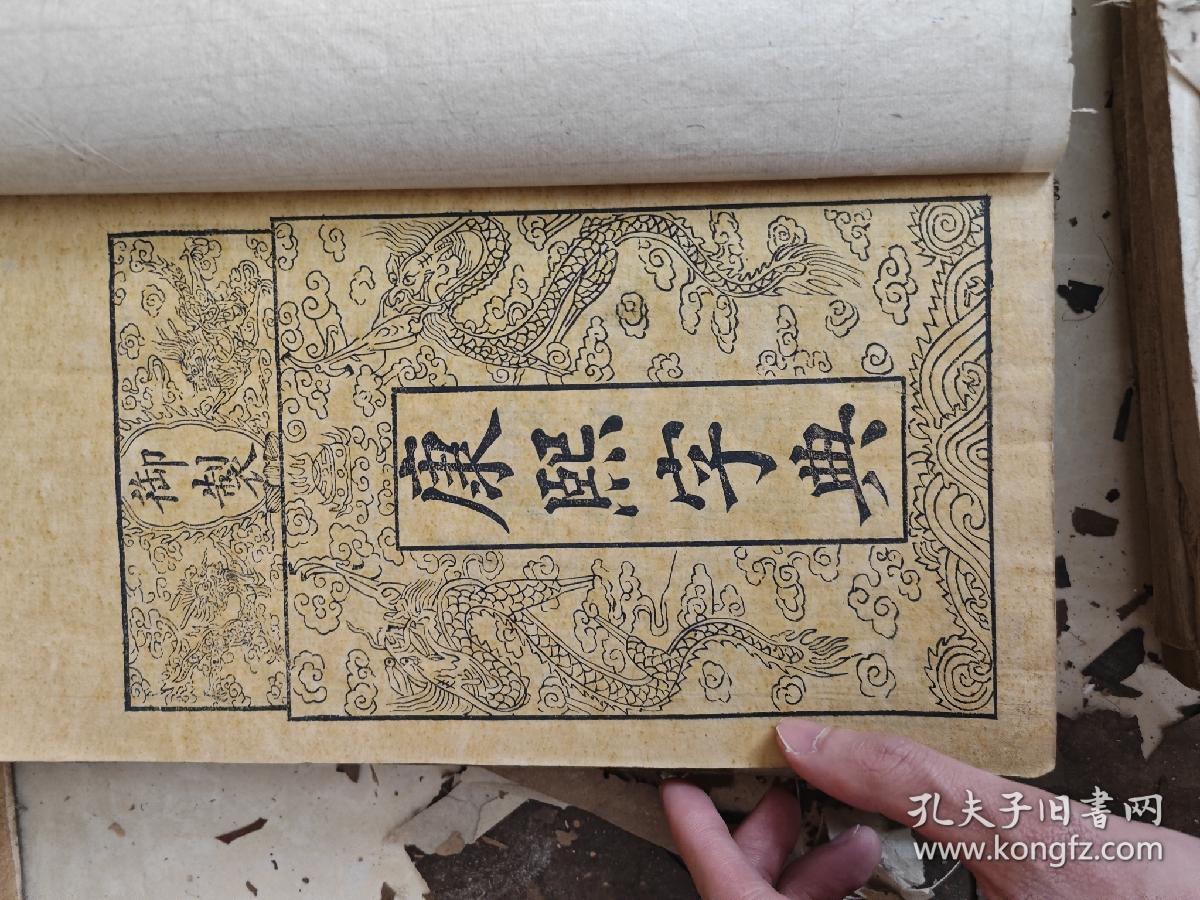 御製
康熙字典
孔夫子旧書网
www.kongfz.com